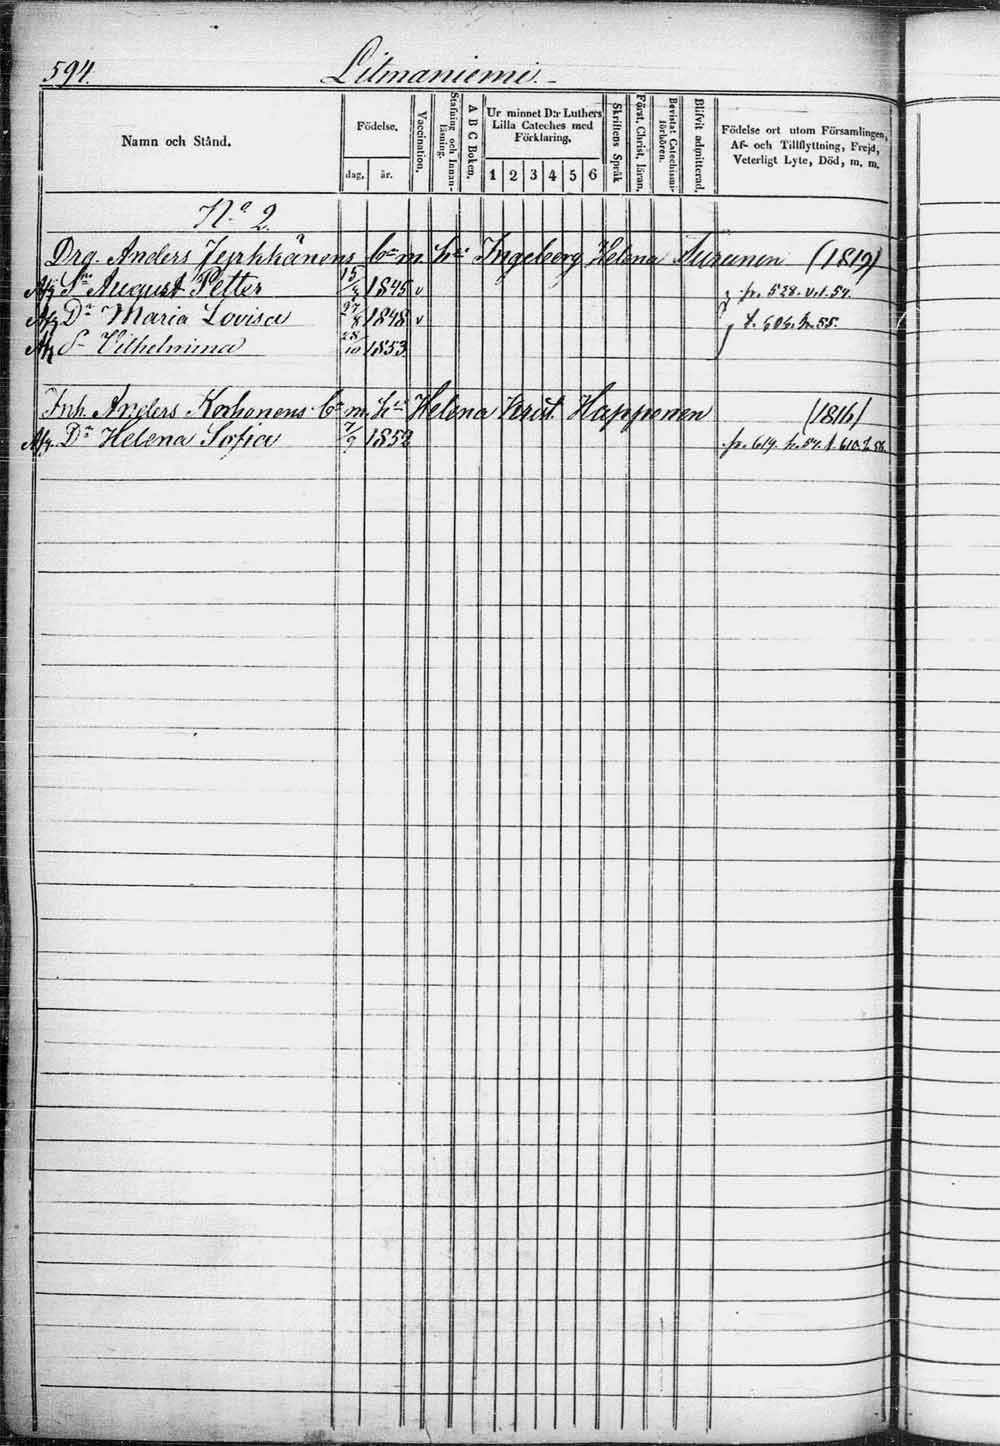 594.
Litmaniemi.
Namn och Stånd.
Födelse.
dag.
år.
Vaccination.
Stafning och Innanläsning.
A B C Boken.
Ur minnet D:r Luthers
Lilla Cateches med
Förklaring.
1 2 3 4 5 6
Skriftens Språk
Först. Christ. läran.
Bevistat Catechismi-
förhören.
Blifvit admitterad.
Födelse ort utom Församlingen,
Af- och Tillflyttning, Frejd,
Veterligt Lyte, Död, m. m.
N:o 2.
Drg. Anders b:n m. h:u Ingeborg Helena Turunen (1819)
S:n August Petter 15/3 1845 v fr. 528. v. t. 54.
D:r Maria Lovisa 27/8 1848 v t. 606. 55.
Vilhelmina 28/10 1853
Inh. Anders Korhonens b:n m. h:u Helena Happonen (1816)
D:r Helena Sofia 7/9 1852 fr. 619.